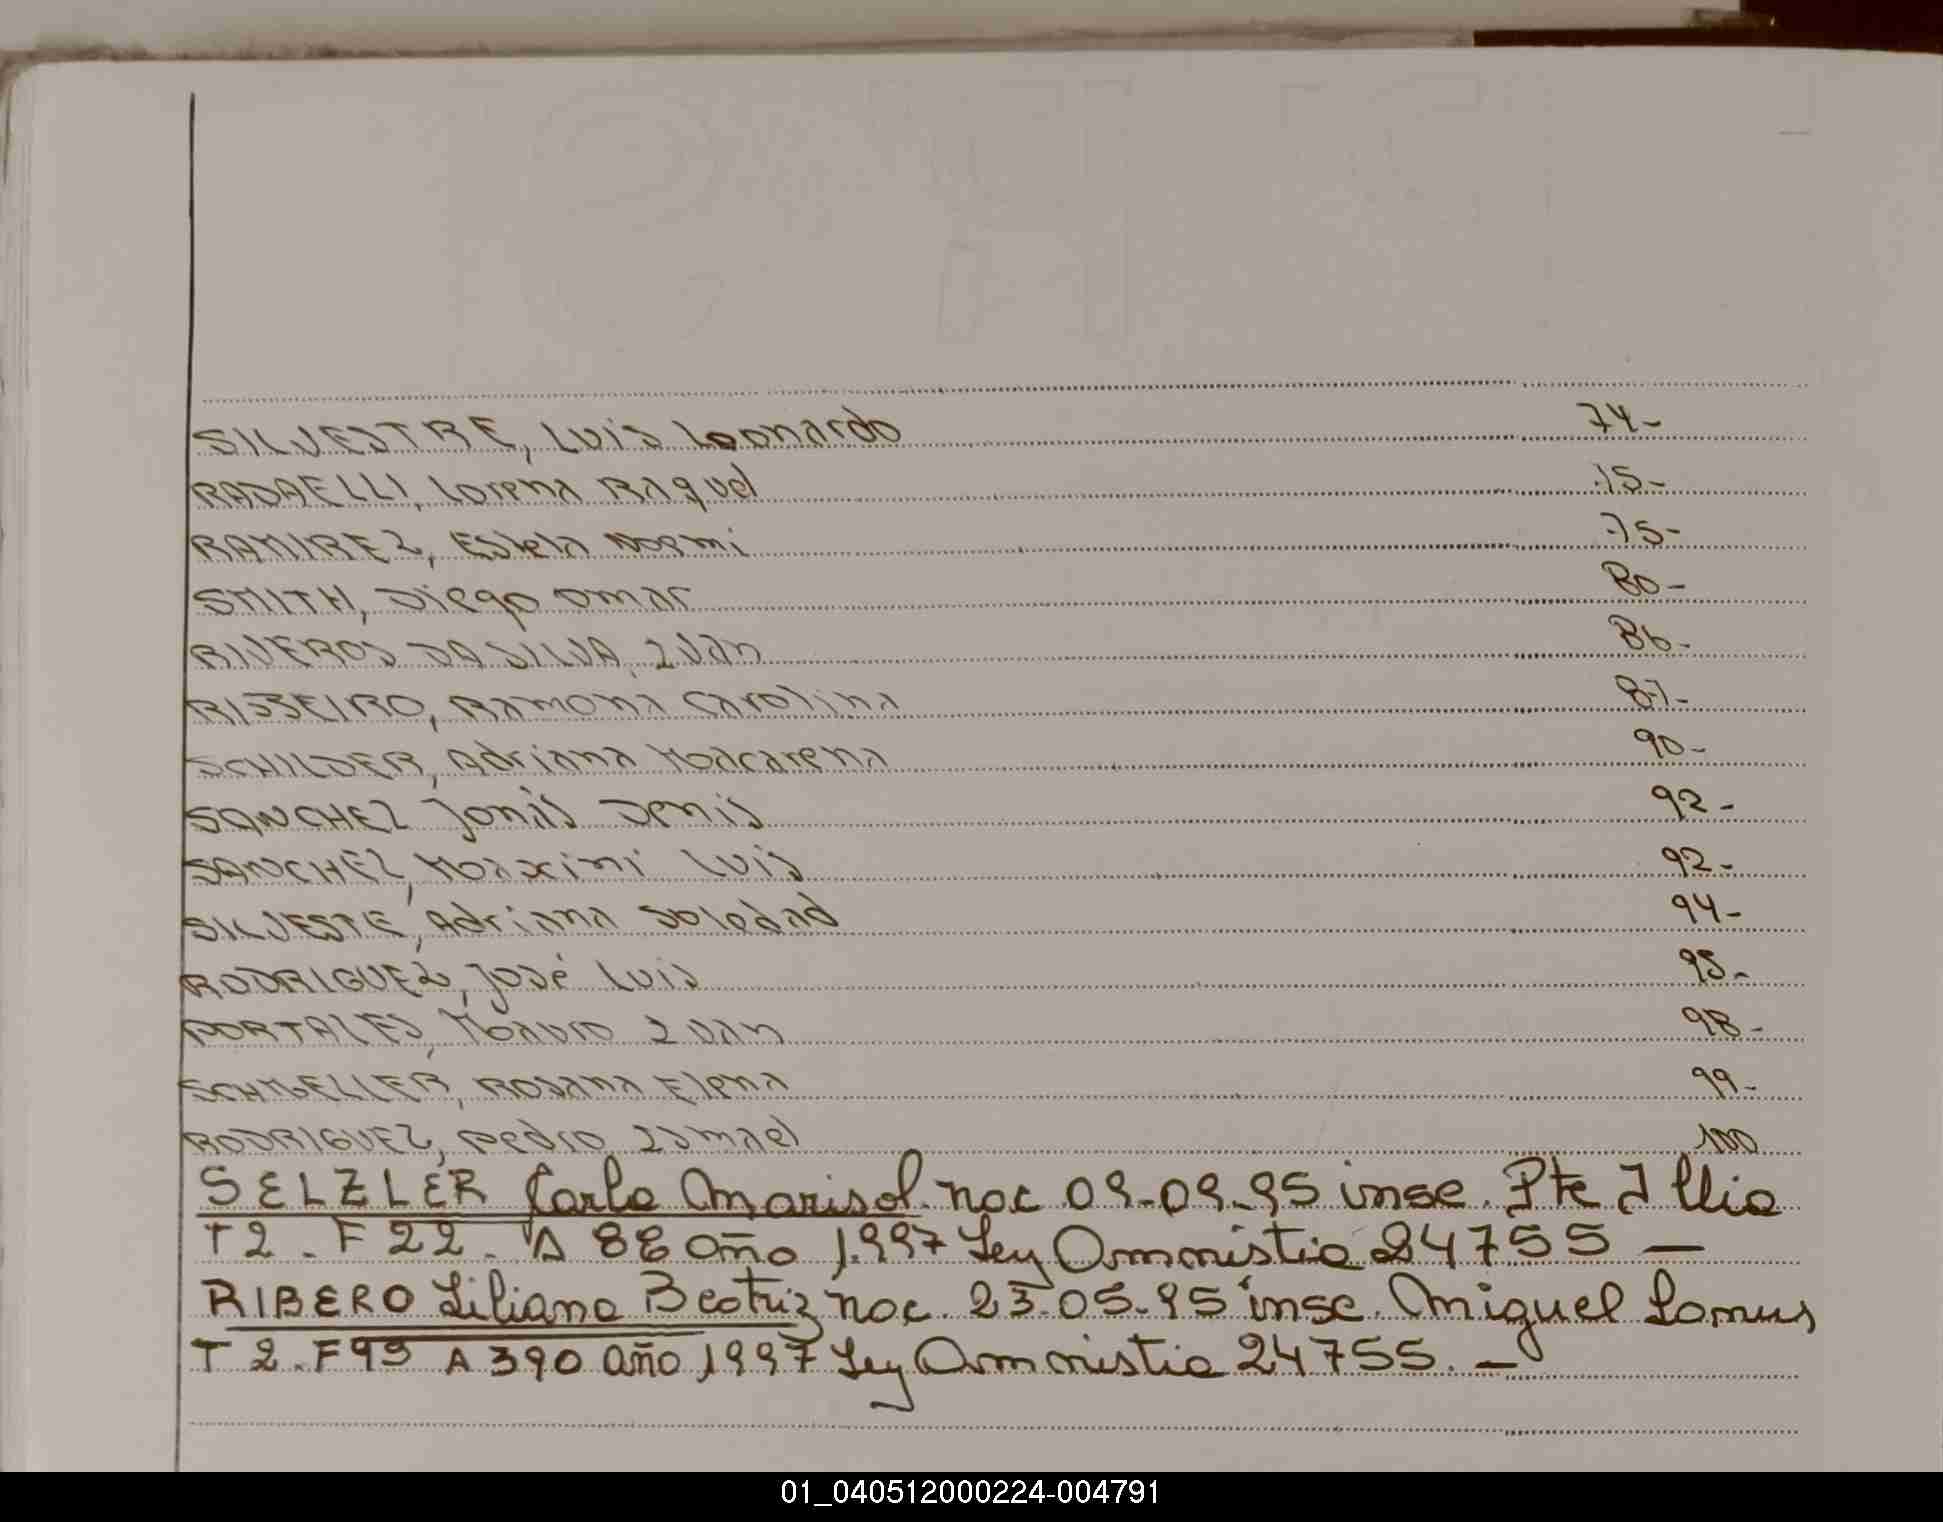 SILVESTRE, Luis Leonardo 74-
RADAELLI, Lorena Raquel 75-
RAMIREZ, Estela Noemi 75-
SMITH, Diego Omar 80-
RIVEROS DA SILVA, Ivan 86-
RIBBEIRO, Ramona Carolina 87-
SCHILDER, Adriana Macarena 90-
SANCHEZ Jonás Denis 92-
SANCHEZ, Maximi Luis 92-
SILVESTE, Adriana Soledad 94-
RODRIGUEZ, José Luis 95-
PORTALES, Mauro Ivan 98-
SCHMELLER, Rosana Elena 99-
RODRIGUEZ, Pedro Ismael 100
SELZLER Carla Marisol nac 09-09-95 insc. Pte Illia
T2. F 22. A 88 año 1.997 Ley Ammistia 24755 —
RIBERO Liliana Beatriz nac. 23.05.95 insc. Miguel Lanus
T 2. F 93 A 390 año 1997 Ley Ammistia 24755. —
01_040512000224-004791